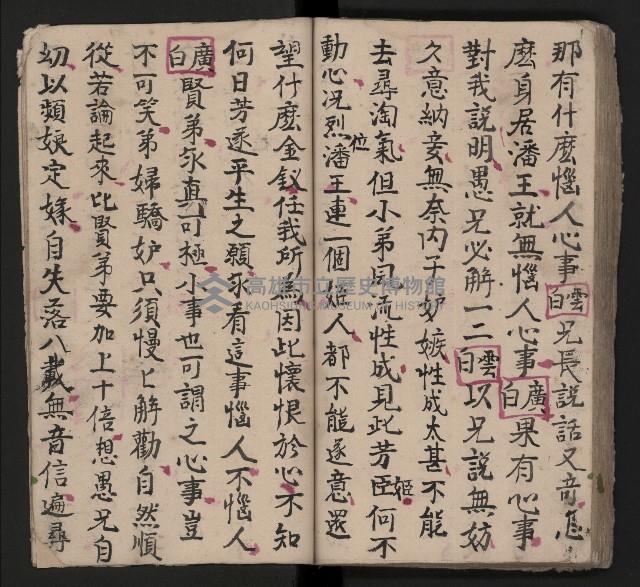 那有什麽惱人心事雲白兄長說話又奇怎
麽身居潘王就無惱人心事廣白果有心事
對我說明愚兄必解一二雲白以兄說無妨
久意納妾無奈內子妒嫉性成太甚不能
去尋淘氣但小弟風流性成見此芳臣姬何不
動心况烈位潘王連一個姬人都不能遂意還
望什麽金釵任我所為因此懷恨於心不知
何日芳遂平生之願永看這事惱人不惱人
廣白賢弟永真可極小事也可謂之心事豈
不可笑弟婦驕妒只須慢匕解勸自然順
從若論起來比賢弟要加上十倍想愚兄自
幼以頻娘定嫁自失落八載無音信遍尋
高雄市立歷史博物館
KAOHSIUNG MUSEUM OF HISTORY